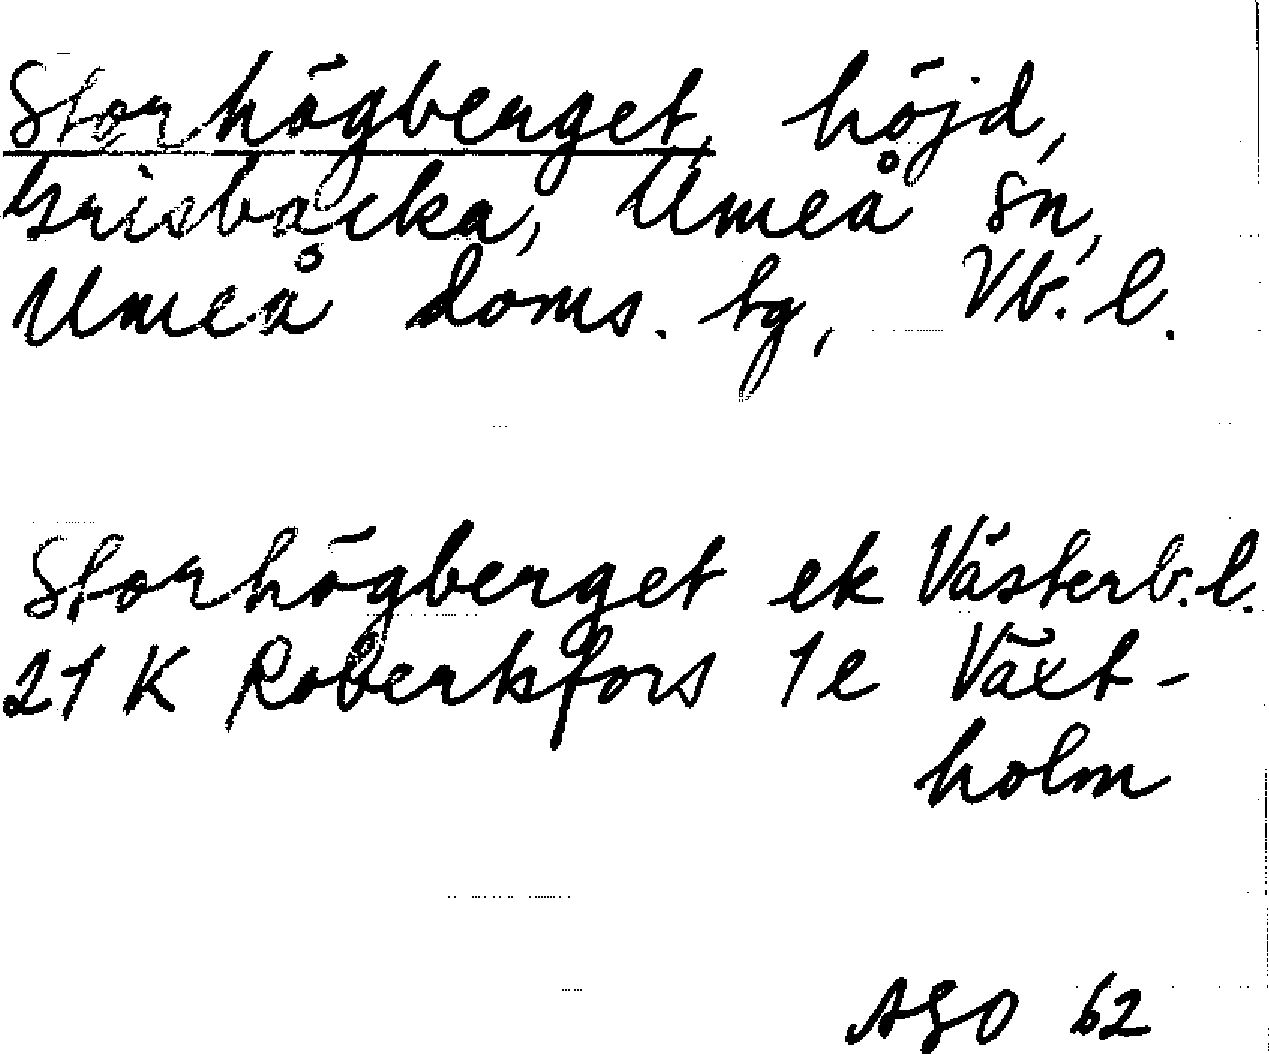 Storhögberget, höjd,
Grisbacka, Umeå sn,
Umeå doms. tg, Vb. l.
Storhögberget ek Västerb. l.
21 K Robertsfors 1 e Växt-
holm
AGO 62